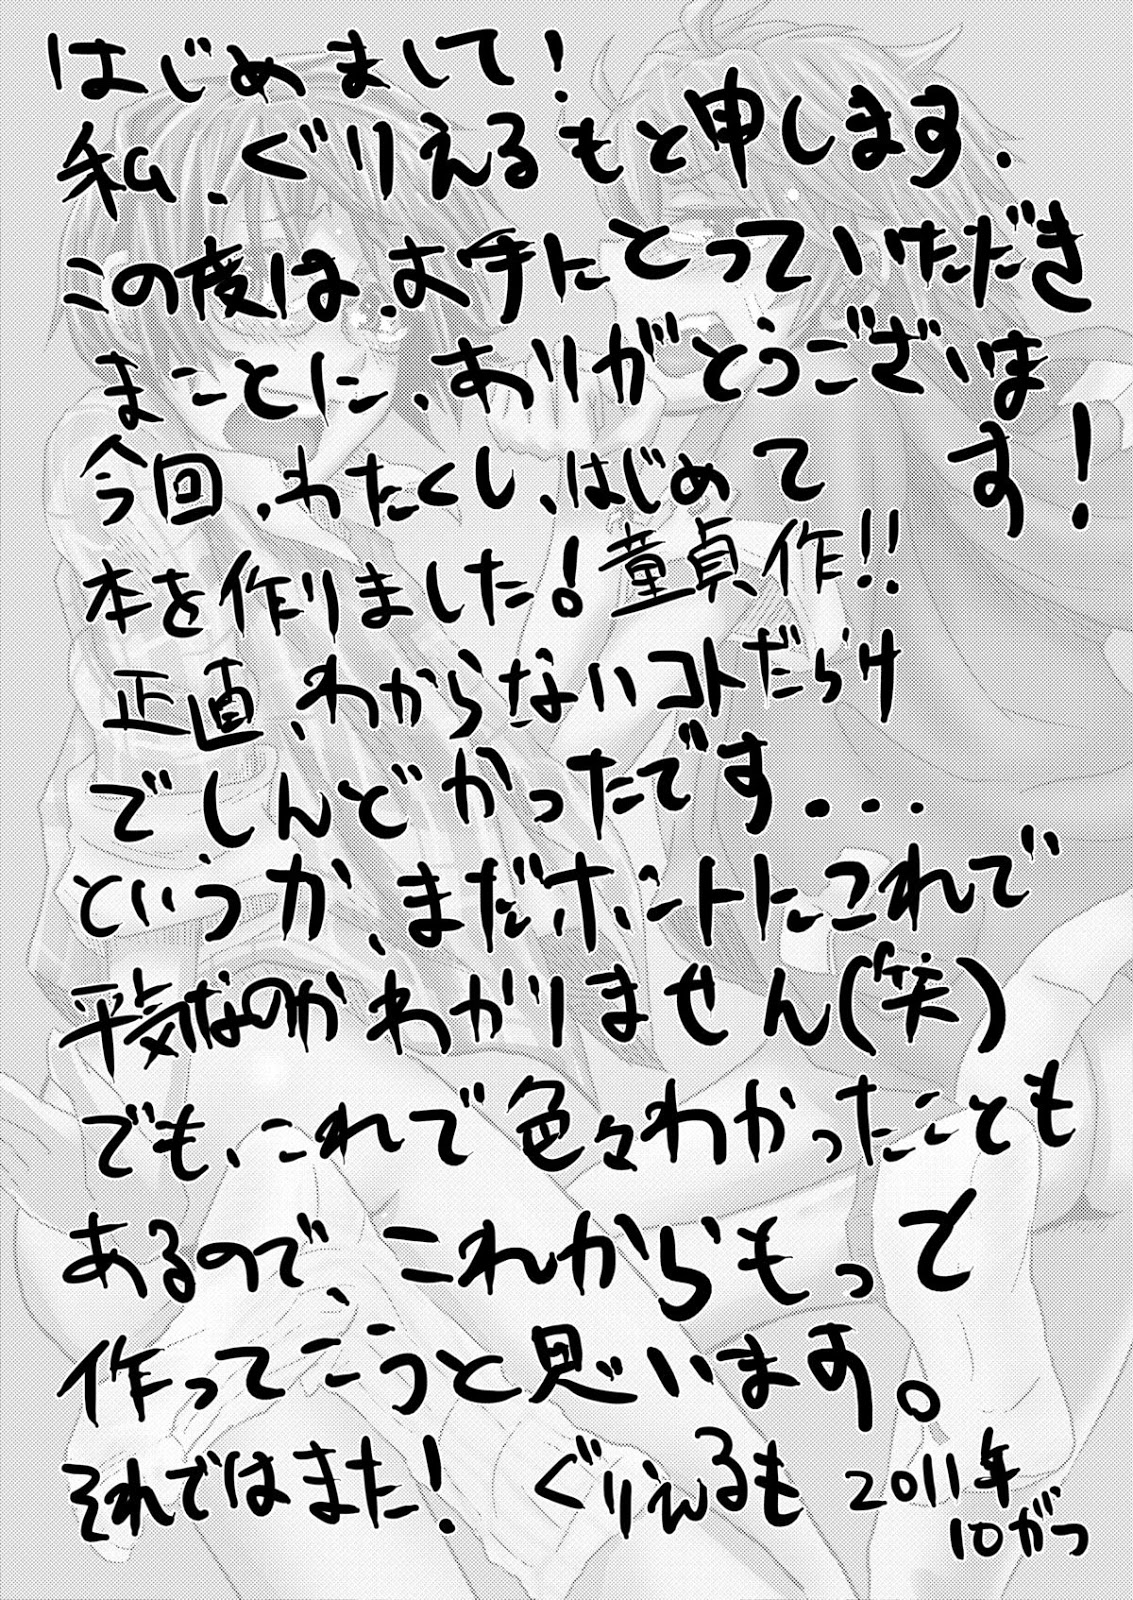 はじめまして！
私、ぐりえるもと申します．
この度は、お手にとっていただき
まことに、ありがとうございま
す！
今回、わたくし、はじめて
本を作りました！童貞作!!
正直、わからないコトだらけ
でしんどかったです...
というか、まだホントにこれで
平気なのかわかりません(笑)
でも、これで色々わかったことも
あるので、これからもっと
作ってこうと思います。
それではまた！ ぐりえるも 2011年
10がつ